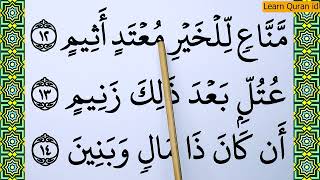 Learn Quran id
مَّنَّاعٍ لِّلْخَيْرِ مُعْتَدٍ أَثِيمٍ ١٢
عُتُلٍّ بَعْدَ ذَٰلِكَ زَنِيمٍ ١٣
أَن كَانَ ذَا مَالٍ وَبَنِينَ ١٤